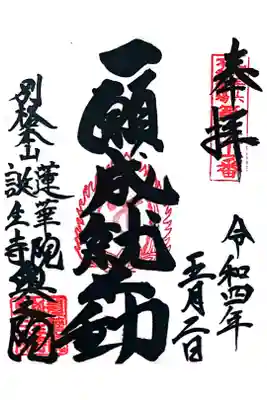 奉拝
令和四年
五月二日
一願成就不動
別格本山
蓮華院誕生寺奥之院